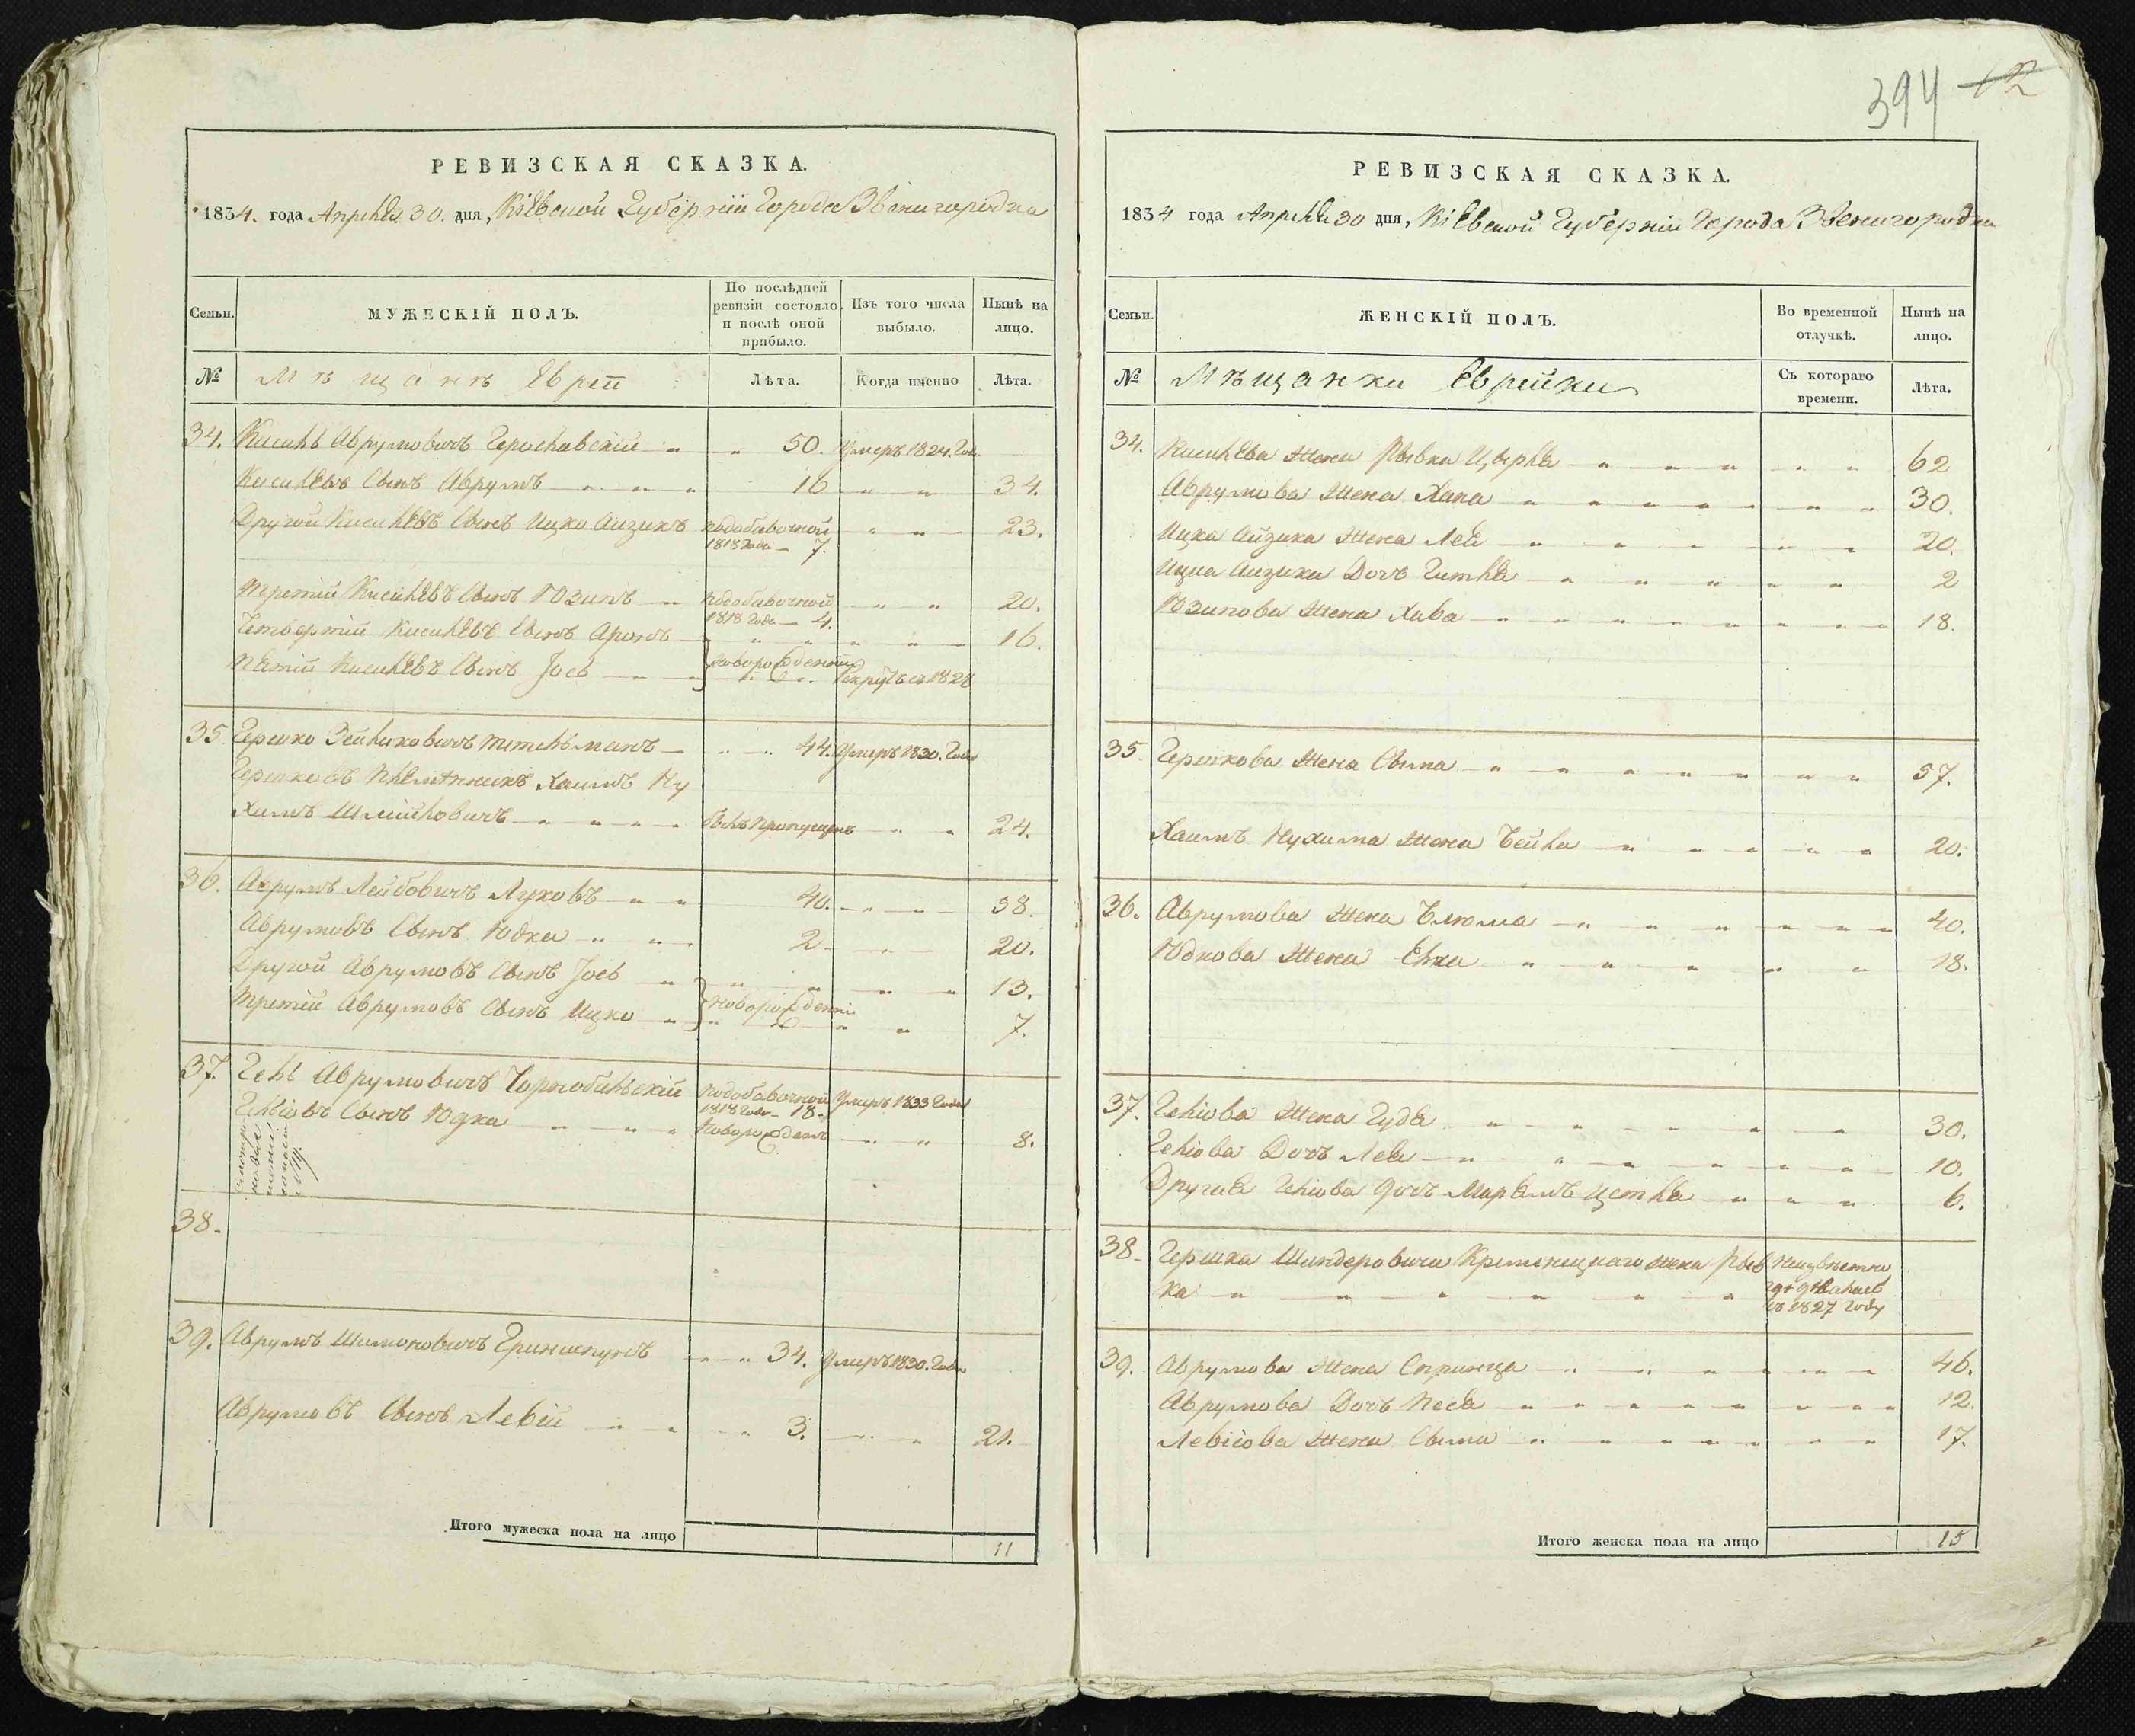 394 12
РЕВИЗСКАЯ СКАЗКА.
1834. года Апрѣля 30. дня, Кіевской Губерніи Города Звенигородки
Семьи.
МУЖЕСКІЙ ПОЛЪ.
По послѣдней ревизіи состояло и послѣ оной прибыло.
Изъ того числа выбыло.
Нынѣ на лицо.
№
Мѣщанъ Евреи
Лѣта.
Когда именно
Лѣта.
34. Кисиль Аврумовичъ 50. Умеръ 1824. Года
Кисилевъ Сынъ Аврумъ 16 34.
Другой Кисилевъ Сынъ Ицко Айзикъ подобавочной 1818 года 7. 23.
Третій Кисилевъ Сынъ Юзипъ подобавочной 1818 года 4. 20.
Четвертій Кисилевъ Сынъ Аронъ 16.
Пятій Кисилевъ Сынъ Іосъ новорожденніи 1828
35. Гершко Зейликовичъ Тительманъ 44. Умеръ 1830. Года
Гершковъ Племѣнникъ Хаимъ Ну
Химъ Шмійловичъ былъ пропущенъ 24.
36. Аврумъ Лейбовичъ Луховъ 40. 38.
Аврумовъ Сынъ Юдка 2 20.
Другой Аврумовъ Сынъ Іосъ 13.
Третій Аврумовъ Сынъ Ицко новорожденніи 7.
37. Гель Аврумовичъ Чорнобильскій подобавочной 1818 года 18. Умеръ 1833 Года
Геліовъ Сынъ Юдка Новорожденъ 8.
38.
39. Аврумъ Шимоновичъ Гриншпунъ 34. Умеръ 1830. Года
Аврумовъ Сынъ Левій 3. 21.
Итого мужеска пола на лицо 11
РЕВИЗСКАЯ СКАЗКА.
1834 года Апрѣля 30 дня, Кіевской Губерніи Города Звенигородки
Семьи.
ЖЕНСКІЙ ПОЛЪ.
Во временной отлучкѣ.
Нынѣ на лицо.
№
Мѣщанки Еврейки
Съ котораго времени.
Лѣта.
34. Кисилева Жена Рывка Цырля 62
Аврумова Жена Хана 30.
Ицка Айзика Жена Лея 20.
Ицка Айзика Дочъ Гитля 2
Юзипова Жена Хава 18.
35. Гершкова Жена Сыма 57.
Хаимъ Нухима Жена Бейла 20.
36. Аврумова Жена Блюма 40.
Юдкова Жена Етка 18.
37. Геліова Жена Гудя 30.
Геліова Дочъ Лея 10.
Другая Геліова Дочъ Марямъ Цетля 6.
38. Гершка Шиндеровича Кременецкаго жена Рыв Неизвѣстно
ка гдѣ дѣвалась
въ 1827 году
39. Аврумова Жена Спринца 46.
Аврумова Дочъ Песя 12.
Левіова Жена Сыма 17.
Итого женска пола на лицо 15